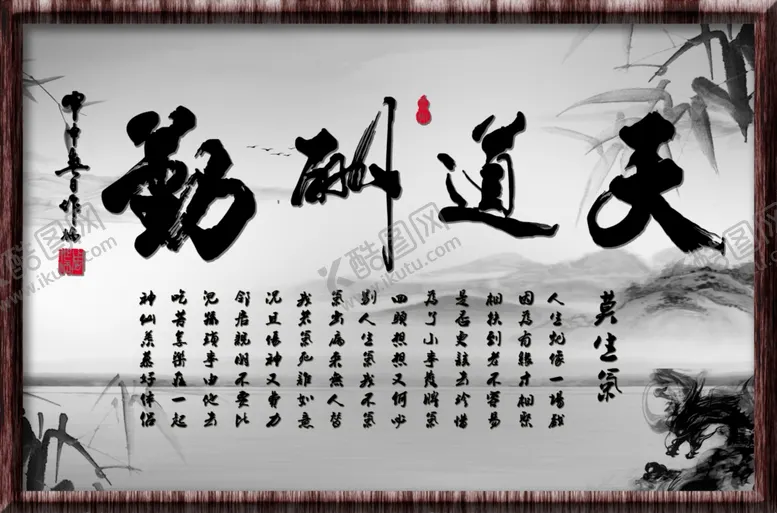 天道酬勤
莫生氣
人生就像一場戲
因為有緣才相聚
相扶到老不容易
是否更該去珍惜
為了小事發脾氣
回頭想想又何必
別人生氣我不氣
氣出病來無人替
我若氣死誰如意
況且傷神又費力
鄰居親朋不要比
兒孫瑣事由他去
吃苦享樂在一起
神仙羨慕好伴侶
酷图网
www.ikutu.com
酷图网
www.ikutu.com